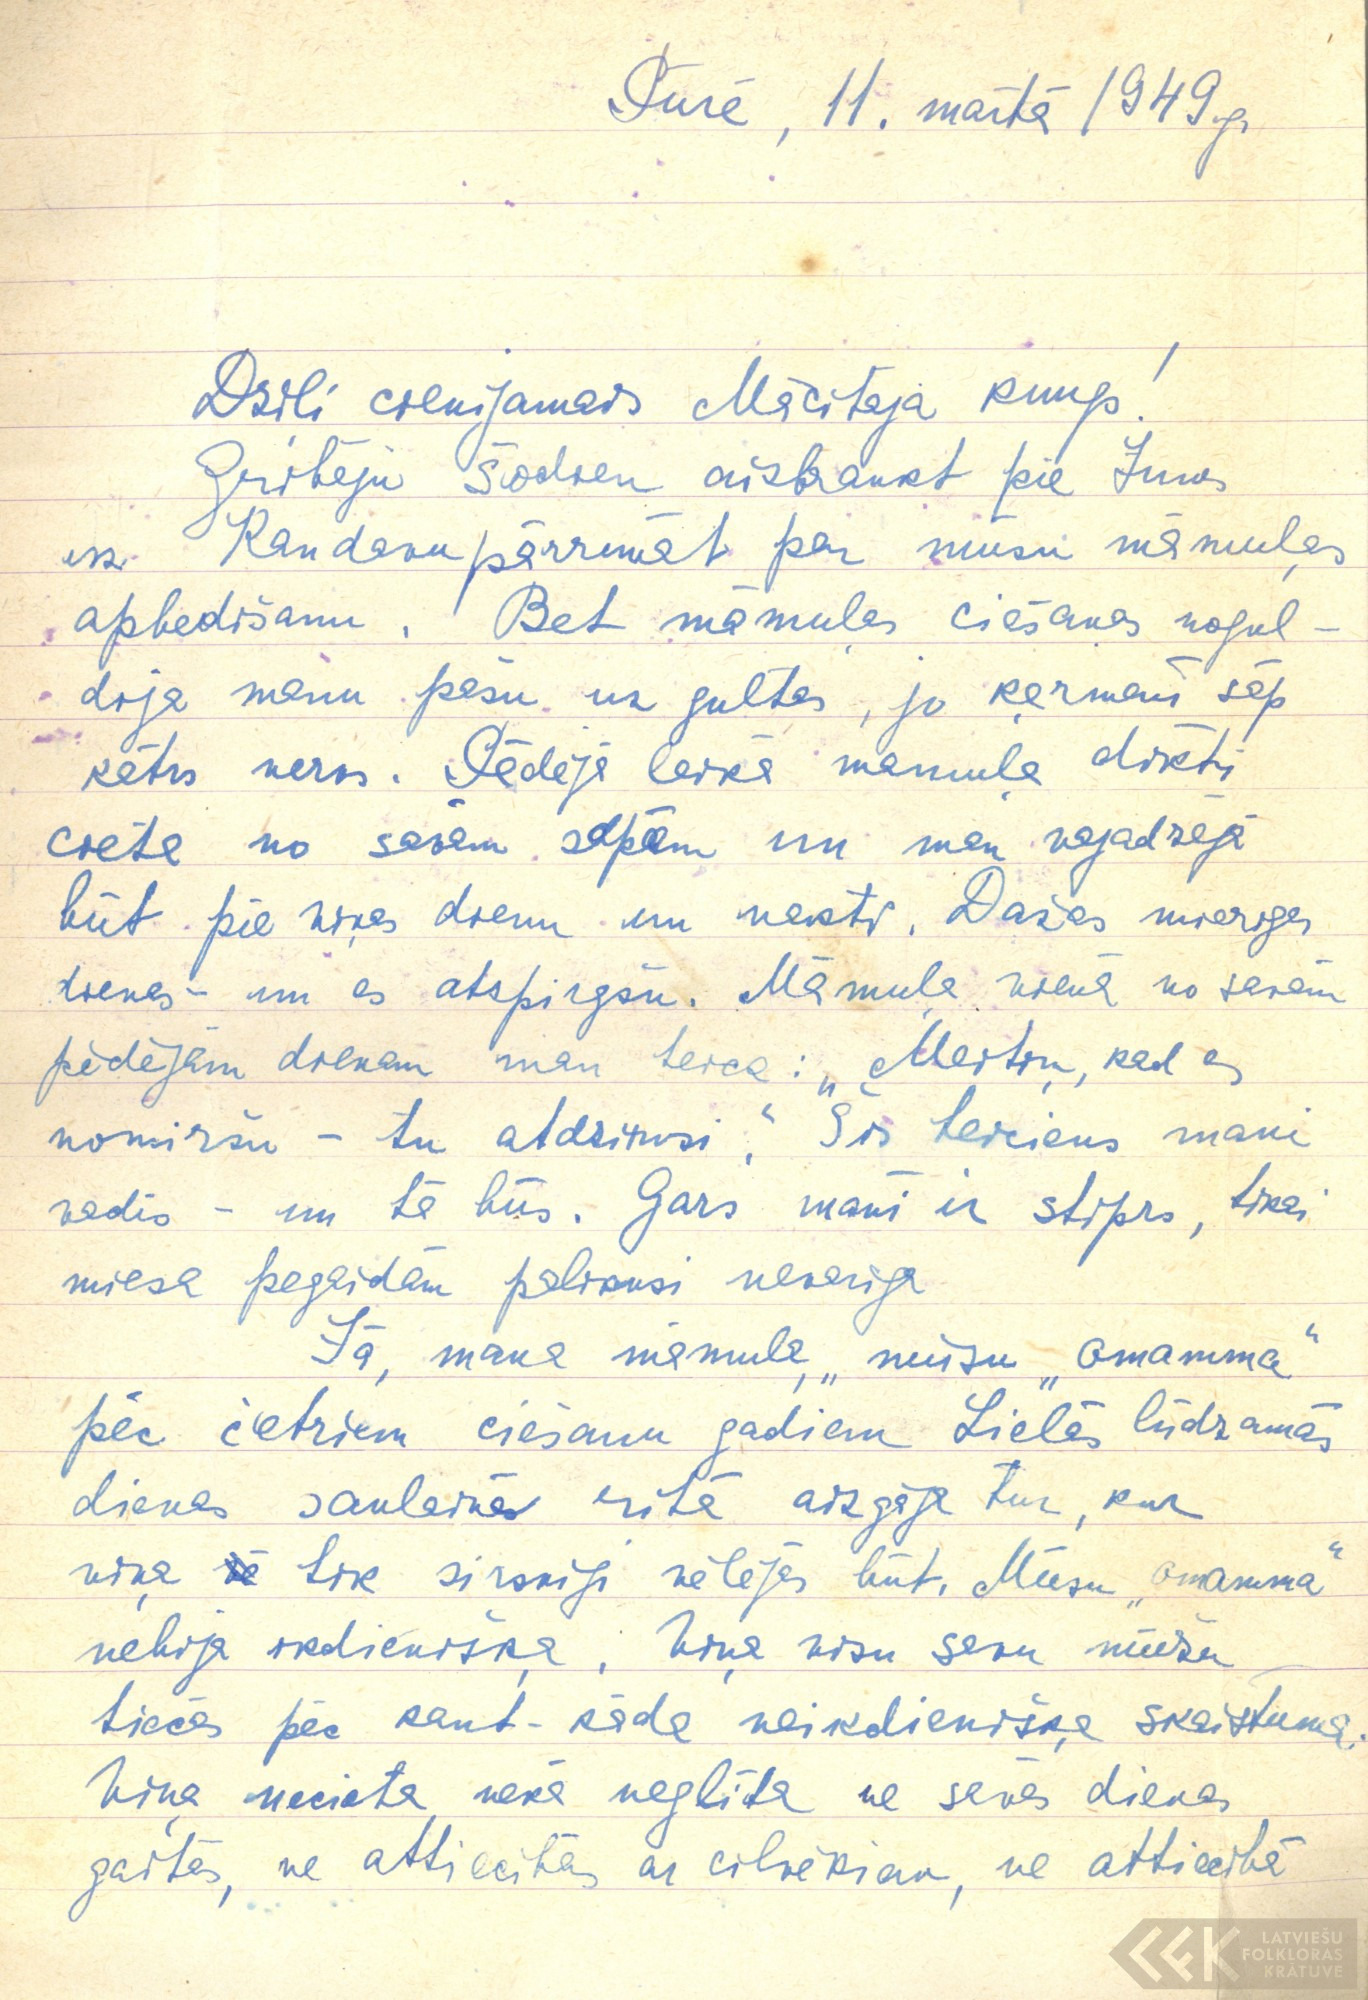 Pūrē, 11. martā 1949.g.
Dziļi cienijamais Mācītāja kungs!
Gribēju šodien aizbraukt pie Jums
uz Kandavu pārrunāt par mūsu māmuļas
apbedišanu. Bet māmuļas ciešanas nogul-
dīja manu pašu uz gultas, jo ķermenī sāp
kātrs nervs. Pēdējā laikā māmuļa dikti
cieta no savām sāpēm un man vajadzēja
būt pie viņas dienu un nakti. Dažas mierīgas
dienas - un es atspirgšu. Māmuļa vienā no savām
pēdējām dienam man teica: „Meitiņ, kad es
nomiršu - tu atdzīvosi." Šis teiciens mani
vadīs - un tā būs. Gars manī ir stiprs, tikai
miesa pagaidām palikusi nevarīga
Jā, mana māmuļa, „mūsu „omamma"
pēc četriem ciešanu gadiem Lielās lūdzamās
dienas saulainā rītā aizgāja tur, kur
viņa tik sirsnīgi vēlējās būt. Mūsu „omamma"
nebija ikdienišķa. Viņa visu savu mūžu
tiecās pēc kaut-kāda neikdienišķa skaistuma.
Viņa necieta nekā neglīta ne savās dienas
gaitās, ne attiecībās ar cilvēkiem, ne attiecībā
LATVIEŠU
FOLKLORAS
KRĀTUVE